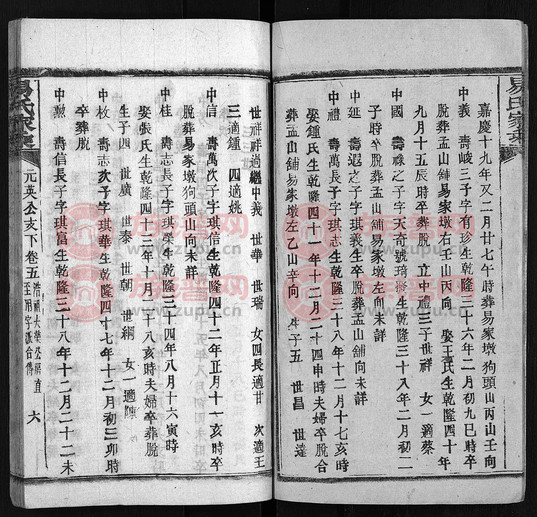 嘉慶十九年又二月廿七午時葬易家墩狗頭山丙山壬向
中義　壽峻三子字有珍生乾隆三十六年二月初九巳時卒
脫葬孟山舖易家墩右壬山丙向　娶王氏生乾隆四十年
九月十五辰時卒葬脫　立中禮三子世祥　女一適蔡
中國　壽祿之子字天奇號琦生乾隆三十八年二月初二
子時卒脫葬孟山舖易家墩左向未詳
中延　壽遐之子字琪義生卒脫葬孟山舖向未詳
中禮　壽萬長子字琪志生乾隆三十八年十二月十七亥時
娶鍾氏生乾隆四十一年十二月二十四申時夫婦卒脫合
葬孟山舖易家墩左乙山辛向　生子五　世昌　世達
世祥祥過繼中義　世華　世瑞　女四長適甘　次適王
三適鍾　四適姚
中信　壽萬次子字琪信生乾隆四十二年正月十一亥時卒
脫葬易家墩狗頭山向未詳
中桂　壽志長子字琪榮生乾隆三十四年八月十六寅時
娶張氏生乾隆四十三年十月二十八亥時夫婦卒葬脫
生子四　世廣　世泰　世朝　世綱　女一適陳
中枚　壽志次子字琪華生乾隆四十七年十二月初三卯時
卒葬脫
中勲　壽信長子字琪富生乾隆三十八年十二月二十二未
易氏家乘
元英公支下卷五　六
族譜網
www.zupu.cn